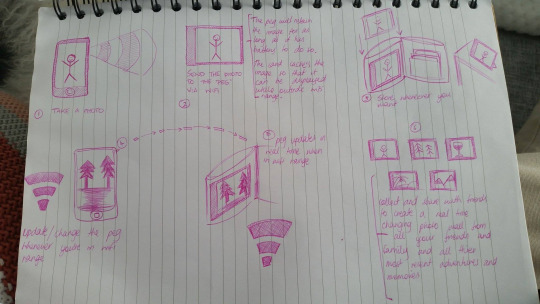 1 TAKE A PHOTO
2 SEND THE PHOTO
TO THE PEG
VIA WIFI
The peg will retain
the image for as
long as it has
battery to do so.
The card caches the
image so that it
can be displayed
whilst outside wifi
range.
3 Store wherever you
want
4
update/change the peg
whenever you're in wifi
range
5
peg updates in
real time when
in wifi range
6
collect and share with friends
to create a real time
changing photo wall from
all your friends and
family and all their
most recent adventures and
memories